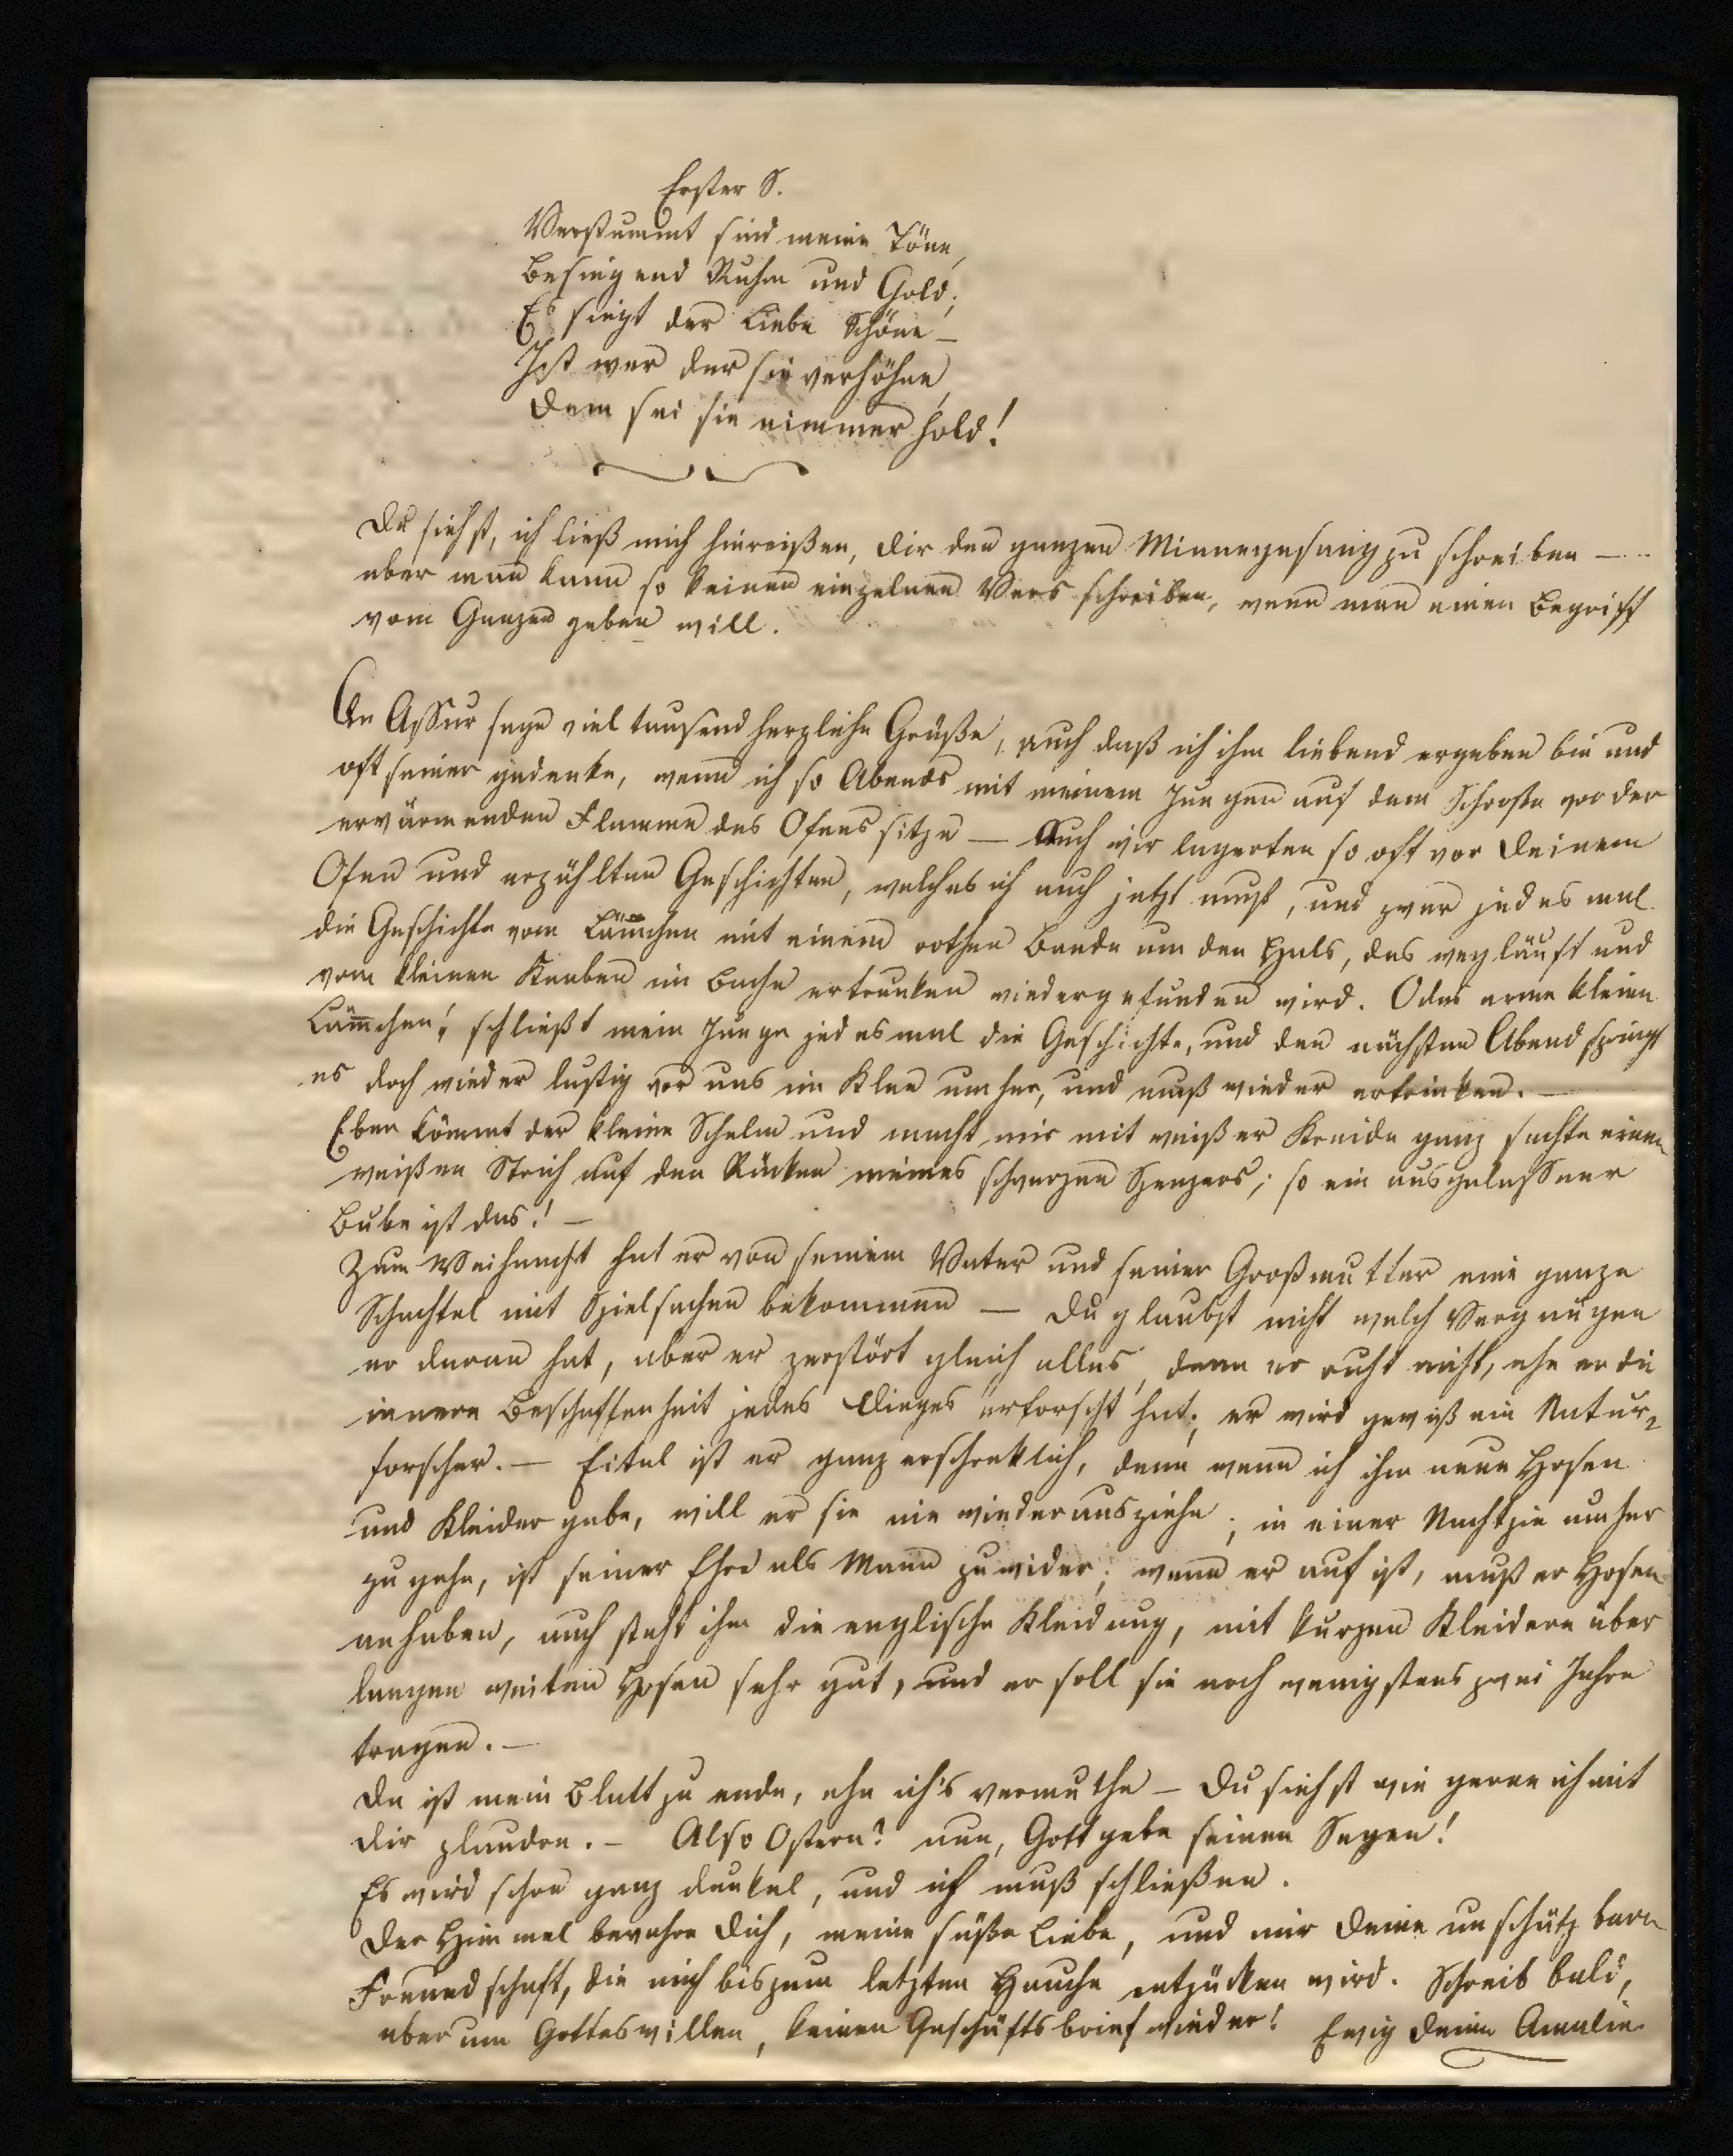 Erster S.
Verstummt sind meine Töne,
Besingend Ruhm und Gold;
Es siegt der Liebe Schöne –
Ist wer der sie verhöhne,
Dem sei sie nimmer hold!
Du siehst, ich ließ mich hinreißen, Dir den ganzen Minnegesang zu schreiben – ..
aber man kann so keinen einzelnen Vers schreiben, wenn man einen Begriff
vom Ganzen geben will.
An Assur sage viel tausend herzliche Grüße, auch daß ich ihm liebend ergeben bin und
oft seiner gedenke, wenn ich so Abends mit meinem Jungen auf dem Schooße vor der
erwärmenden Flamme des Ofens sitze – Auch wir lagerten so oft vor Deinem
Ofen und erzählten Geschichten, welches ich auch jetzt muß, und zwar jedes mal
die Geschichte vom Läm̅chen mit einem rothen Bande um den Hals, das wegläuft und
vom kleinen Knaben im Bache ertrunken wiedergefunden wird. O das arme kleine
Läm̅chen! schließt mein Junge jedesmal die Geschichte, und den nächsten Abend springt
es doch wieder lustig vor uns im Klee umher, und muß wieder ertrinken. –
Eben kömmt der kleine Schelm und macht mir mit weißer Kreide ganz sachte einen
weißen Strich auf den Rücken meines schwarzen Spenzers; so ein ausgelassner
Bube ist das! –
Zum Weihnacht hat er von seinem Vater und seiner Großmutter eine ganze
Schachtel mit Spielsachen bekommen – Du glaubst nicht welch Vergnügen
er daran hat, aber er zerstört gleich alles, denn er ruht nicht, ehe er die
innere Beschaffenheit jedes Dinges erforscht hat; er wird gewiß ein Natur=
forscher. – Eitel ist er ganz erschrecklich, denn wenn ich ihm neue Hosen
und Kleider gebe, will er sie nie wieder ausziehn; in einer Nachtjie umher
zu gehn, ist seiner Ehre als Mann zuwider; wenn er auf ist, muß er Hosen
anhaben, auch steht ihm die englische Kleidung, mit kurzen Kleidern über
langen weiten Hosen sehr gut, und er soll sie noch wenigstens zwei Jahre
tragen. –
Da ist mein Blatt zu ende, ehe ich's vermuthe – Du siehst wie gerne ich mit
Dir plaudre. – Also Ostern? nun, Gott gebe seinen Segen!
Es wird schon ganz dunkel, und ich muß schließen.
Der Himmel bewahre Dich, meine süße Liebe, und mir Deine unschätzbare
Freundschaft, die mich bis zum letzten Hauche entzücken wird. Schreib bald,
aber um Gotteswillen, keinen Geschäftsbrief wieder! Ewig Deine Amalie